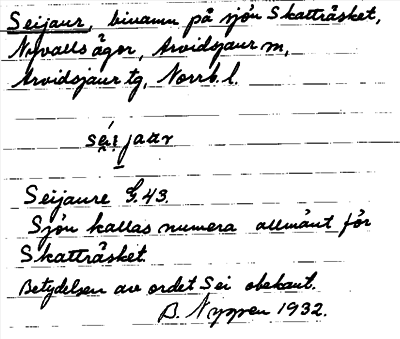 Seijaur, binamn på sjön Skatträsket,
Nyvalls ägor, Arvidsjaur m,
Arvidsjaur tg, Norrb. l.
Seijaure G. 43.
Sjön kallas numera allmänt för
Skatträsket.
Betydelsen av ordet Sei obekant.
B. Nygren 1932.